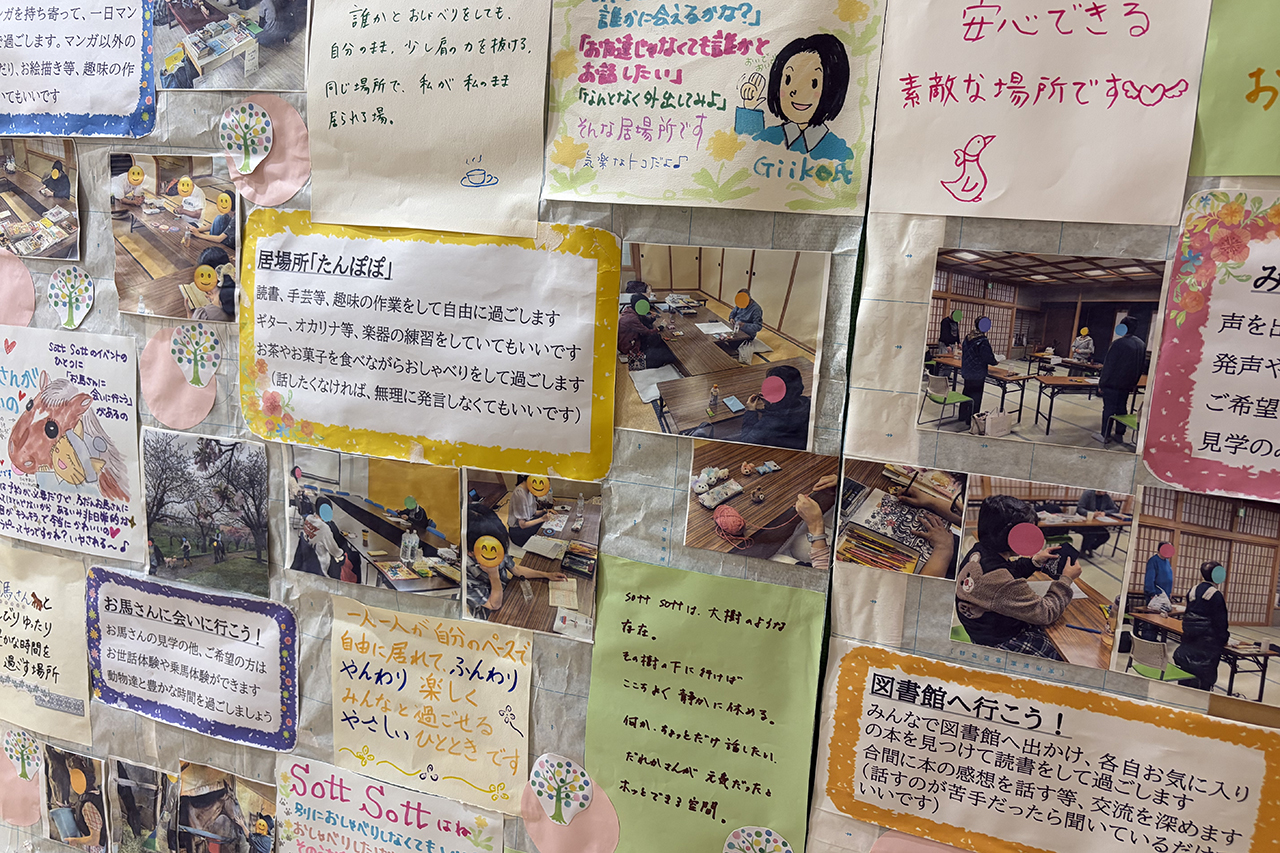 ガを持ち寄って、一日マン
過ごします。マンガ以外の
お絵描き等、趣味の作
いてもいいです
誰かとおしゃべりをしても、
自分のまま、少し肩の力を抜ける。
同じ場所で、私が私のまま
居られる場。
誰かに会えるかな?」
「お友達じゃなくても誰かと
お話したい」
「なんとなく外出してみよ」
そんな居場所です
気楽なトコだよ♪
安心できる
素敵な場所です
お
居場所「たんぽぽ」
読書、手芸等、趣味の作業をして自由に過ごします
ギター、オカリナ等、楽器の練習をしていてもいいです
お茶やお菓子を食べながらおしゃべりをして過ごします
（話したくなければ、無理に発言しなくてもいいです）
み
声を出
発声や
ご希望
見学の
Sott Sottのイベントの
ひとつに
「お馬さんに
会いに行こう」
があるの
お馬さんに会いに行こう！
お馬さんの見学の他、ご希望の方は
お世話体験や乗馬体験ができます
動物達と豊かな時間を過ごしましょう
馬さんと
びりゆったり
かな時間を
過ごす場所
一人一人が自分のペースで
自由に居れて、ふんわり
やんわり 楽しく
みんなと過ごせる
やさしい ひとときです
Sott Sottは、大樹のような
存在。
その樹の下に行けば
こころよく静かに休める。
何か、ちょっとだけ話したい、
だれかさんが元気だったと
ホッとできる空間。
図書館へ行こう！
みんなで図書館へ出かけ、各自お気に入り
の本を見つけて読書をして過ごします
合間に本の感想を話す等、交流を深めます
（話すのが苦手だったら聞いているだけ
いいです）
Sott Sottはね
別におしゃべりしなくても